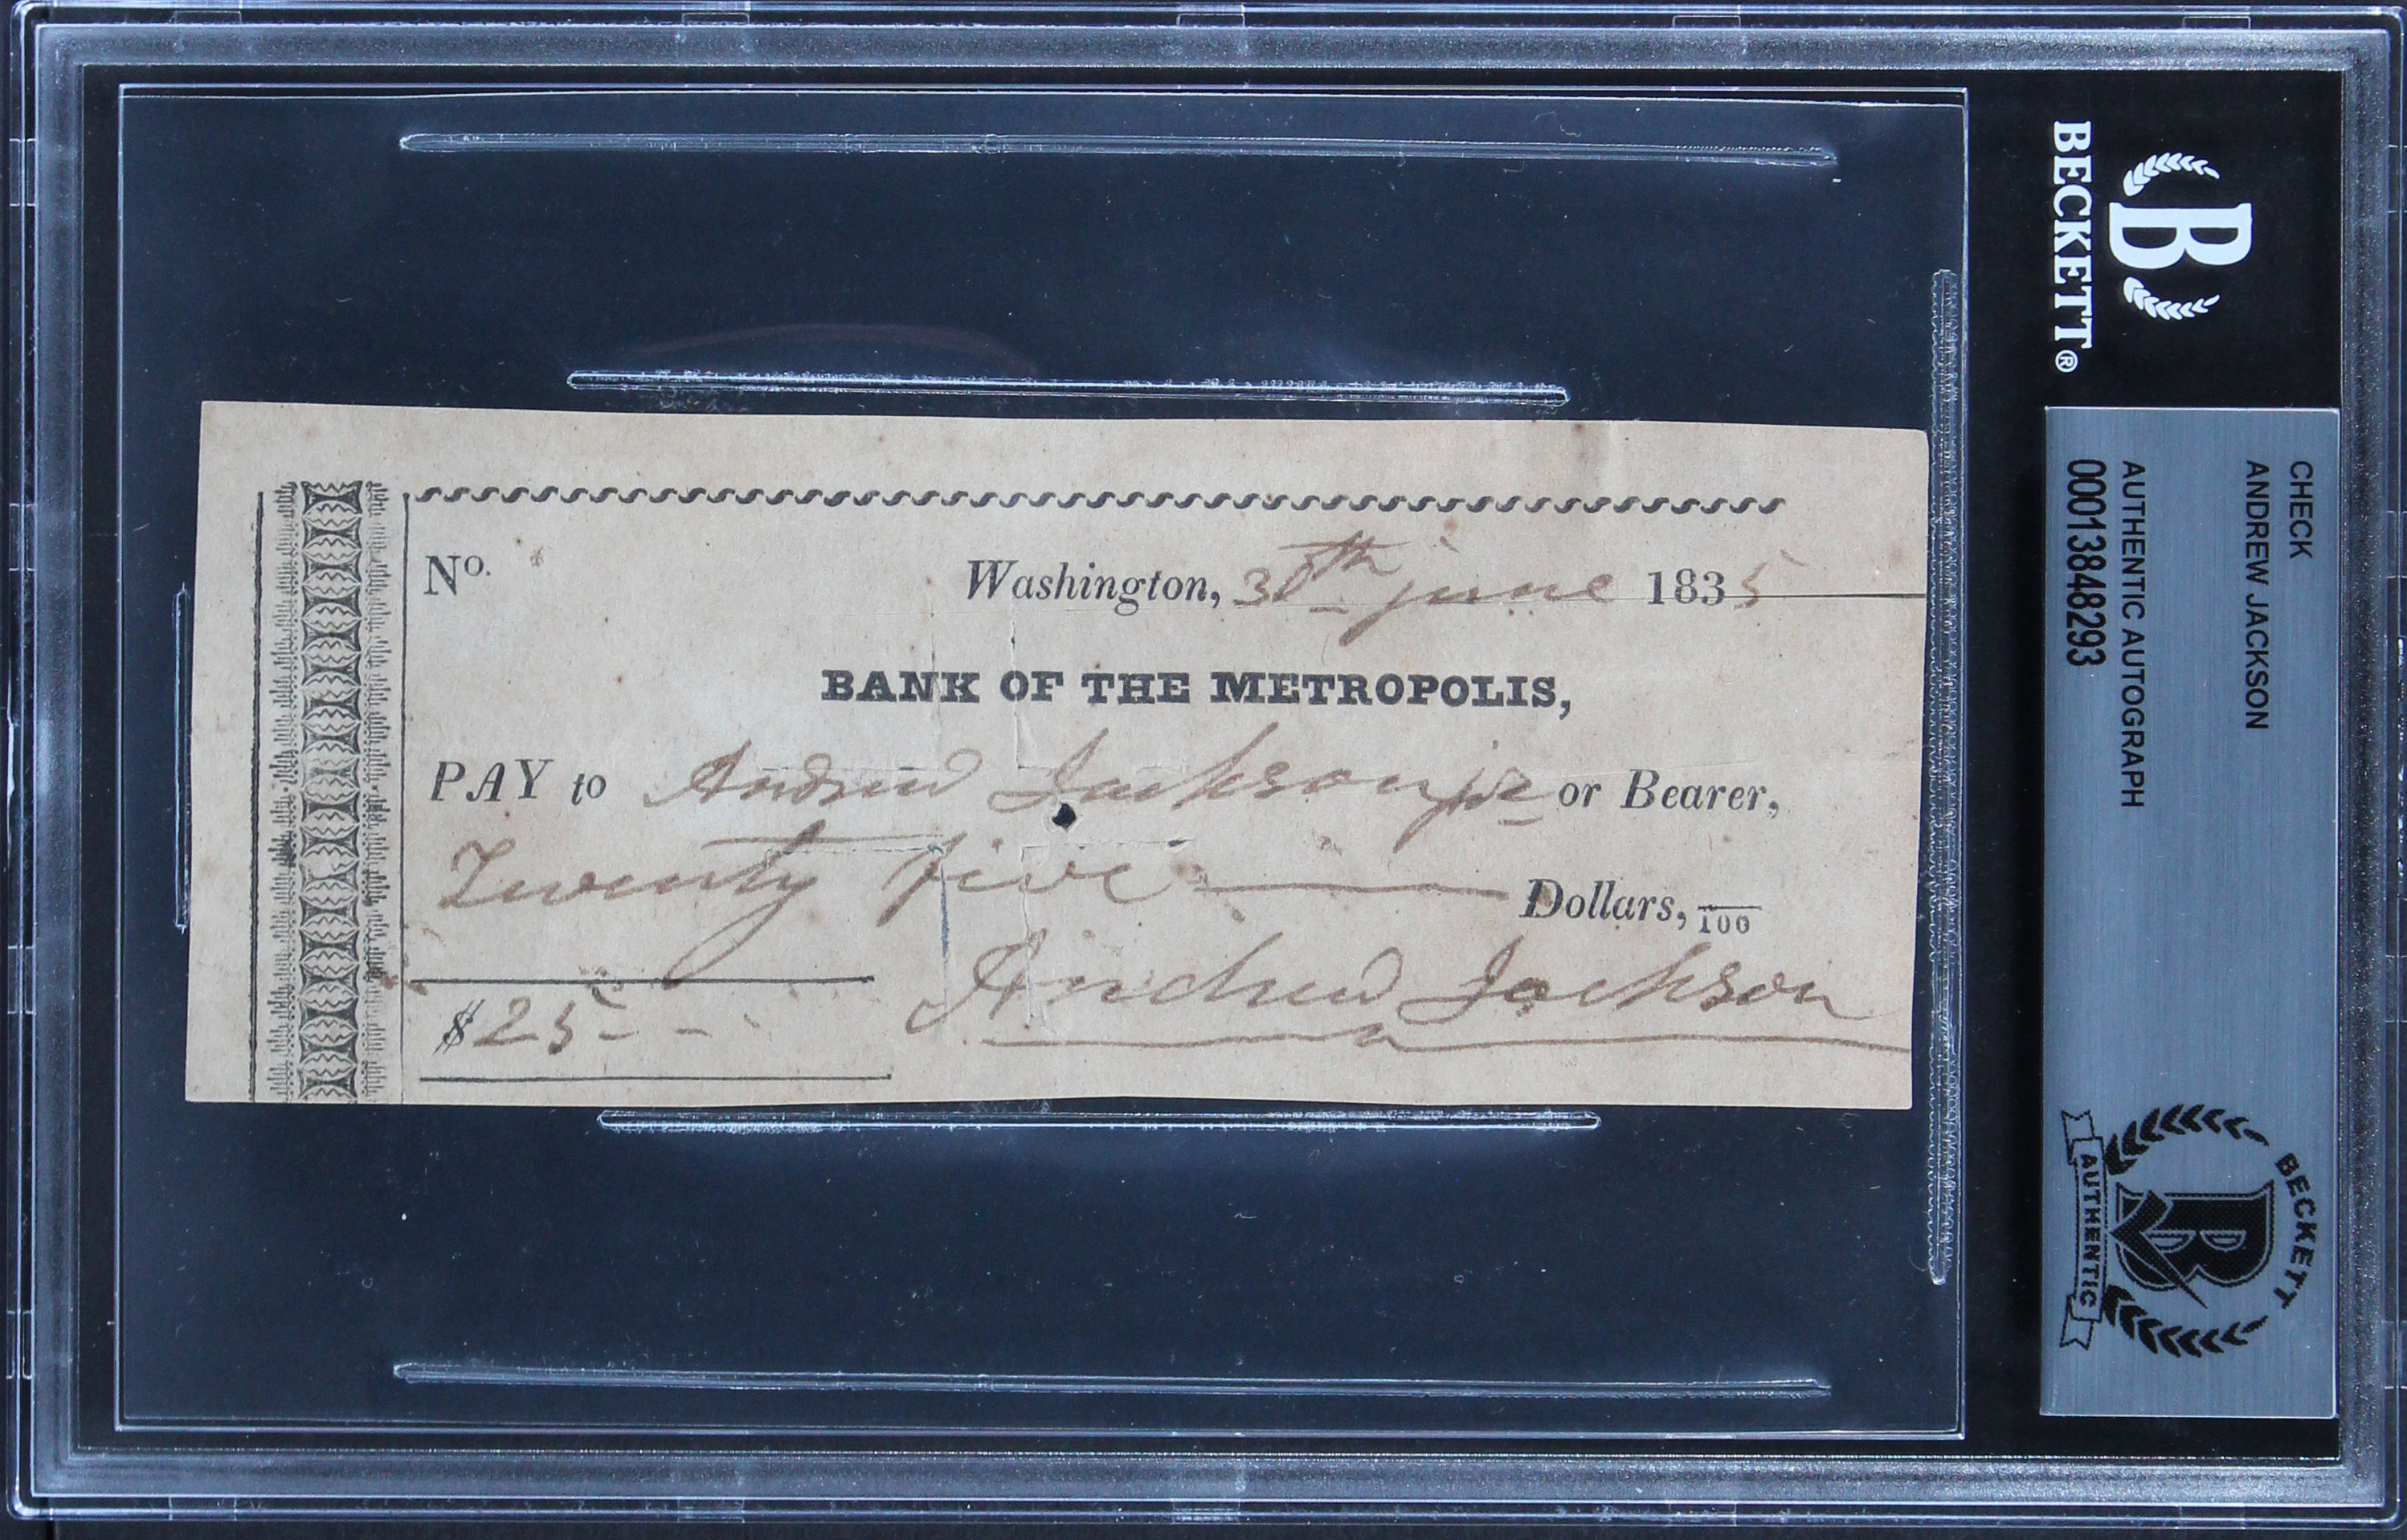 No.
Washington, 30th june 1835
BANK OF THE METROPOLIS,
PAY to Andrew Jackson jr or Bearer,
Twenty five Dollars, /100
$25 - -
Andrew Jackson
BECKETT®
CHECK
ANDREW JACKSON
AUTHENTIC AUTOGRAPH
00013848293
BECKETT
B
AUTHENTIC